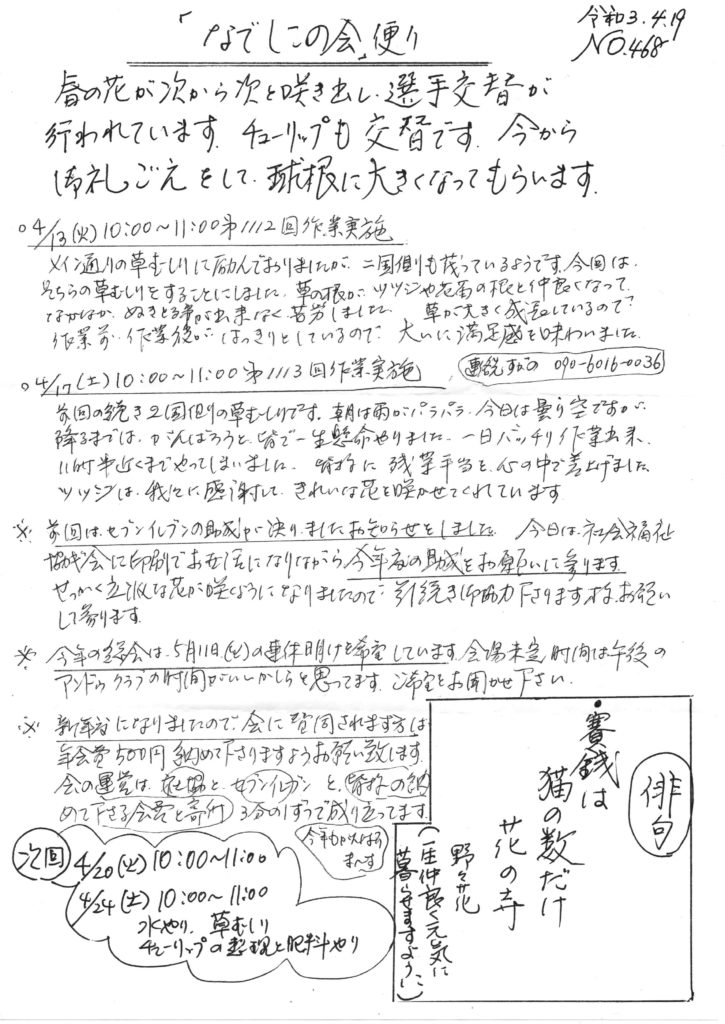 令和3.4.19
NO.468
「なでしこの会」便り
春の花が次から次と咲き出し、選手交替が
行われています。チューリップも交替です。今から
御礼ごえをして、球根に大きくなってもらいます。
○4/13(火)10:00~11:00第1112回作業実施
メイン通りの草むしりに励んでおりましたが、二国側も茂っているようです。今回は、
そちらの草むしりをすることにしました。草の根が、ツツジや花苗の根と仲良くなって、
なかなか、ぬきとる事が出来なく苦労しました。草が大きく成長しているので
作業前・作業後が、はっきりとしているので、大いに満足感を味わいました。
○4/17(土)10:00~11:00第1113回作業実施
連絡すがの 090-6016-0036
前回の続き2国側の草むしりです。朝は雨がパラパラ、今日は曇り空ですが、
降るまでは、がんばろうと、皆で一生懸命やりました。一日バッチリ作業出来、
11時半近くまでやってしまいました。皆様に残業手当を、心の中で差上げました
ツツジは、我々に感謝して、きれいな花を咲かせてくれています。
※ 前回は、セブンイレブンの助成が決りましたお知らせをしました。今日は、社会福祉
協ギ会に印刷でお世話になりながら、今年度の助成をお願いに参ります。
せっかく立派な花が咲くようになりましたので、引続き御協力下さります様、お願い
して参ります。
※ 今年の総会は、5月11日(火)の連休明けを希望しています。会場未定、時間は午後の
アンドゥクラブの時間がいいかしらと思ってます。ご希望をお聞かせ下さい。
※ 新年度になりましたので、会に賛同されます方は
年会費500円納めて下さりますようお願い致します。
会の運営は、社協と、セブンイレブンと、皆様の納
めて下さる会費と寄附 3分の1ずつで成り立ってます。
今年もがんばりま〜す
次回
4/20(火)10:00~11:00
4/24(土)10:00~11:00
水やり、草むしり
チューリップの整理と肥料やり
俳句
・賽銭は
猫の数だけ
花の寺
野々花
(一生仲良く元気に
暮らせますように)